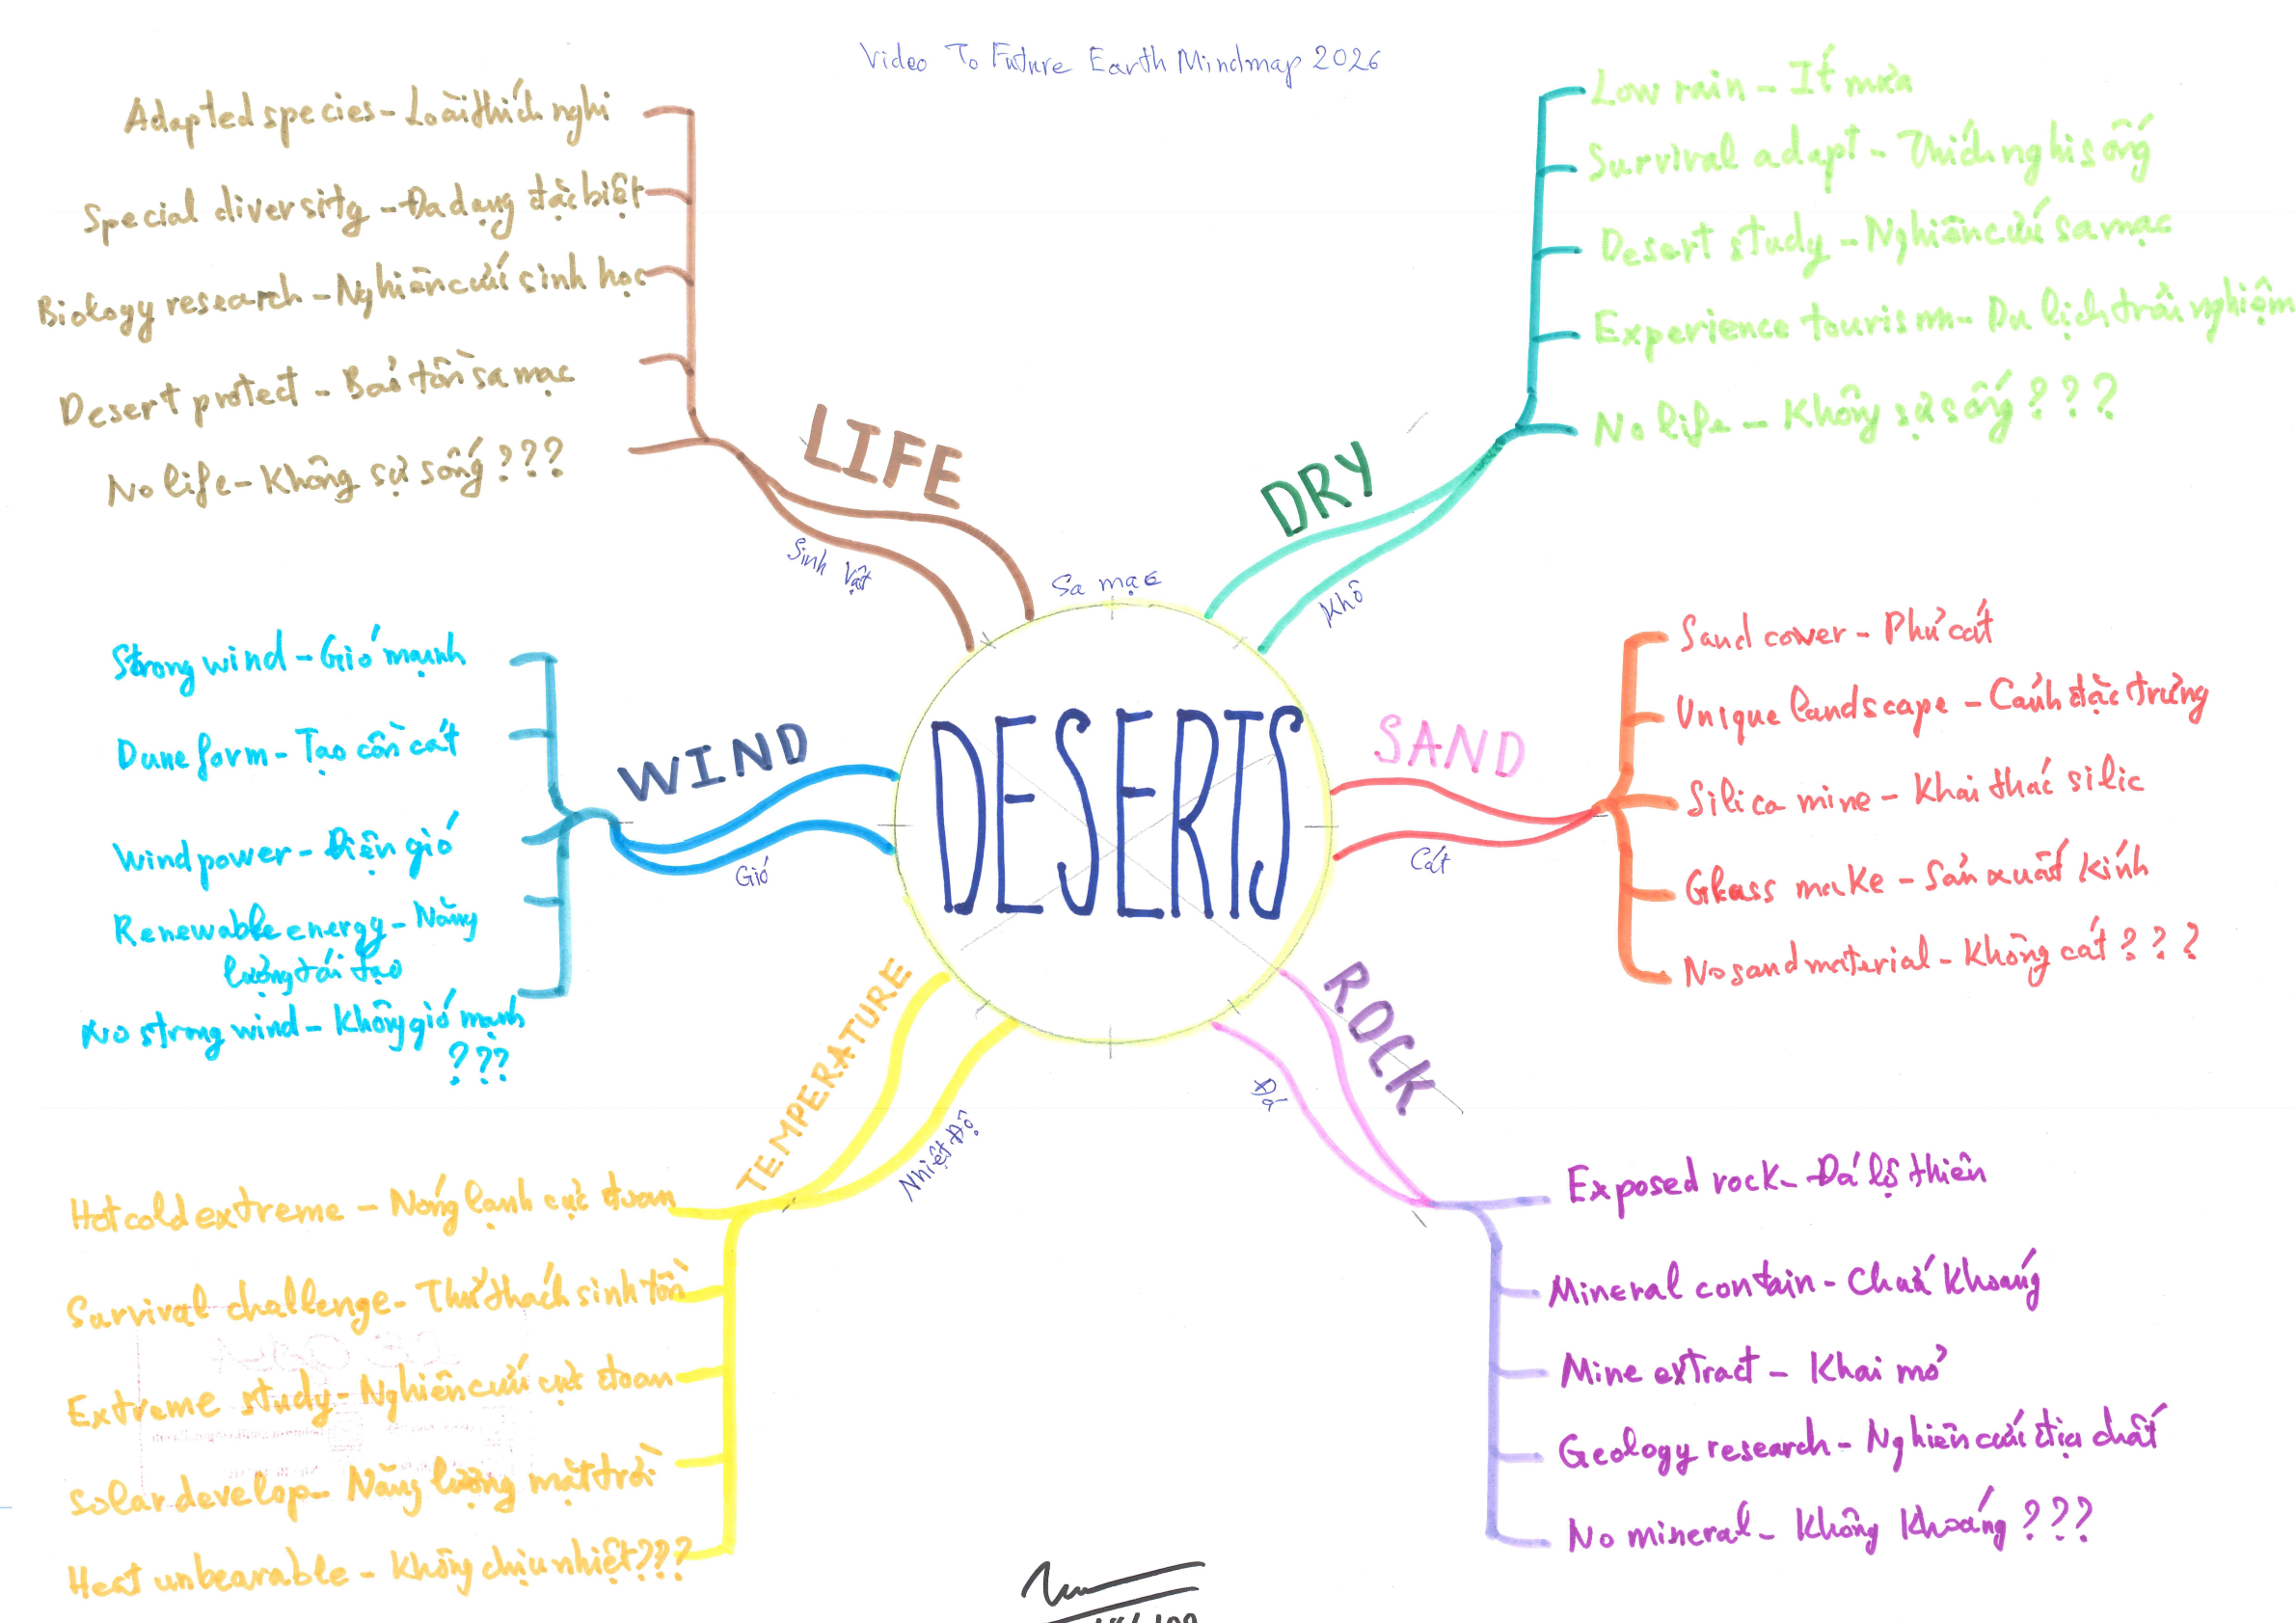 Video To Future Earth Mindmap 2026
DESERTS
Sa mạc
LIFE
Sinh Vật
Adapted species - Loài thích nghi
Special diversity - Đa dạng đặc biệt
Biology research - Nghiên cứu sinh học
Desert protect - Bảo tồn sa mạc
No life - Không sự sống ???
DRY
Khô
Low rain - Ít mưa
Survival adapt - Thích nghi sống
Desert study - Nghiên cứu sa mạc
Experience tourism - Du lịch trải nghiệm
No life - Không sự sống ???
WIND
Gió
Strong wind - Gió mạnh
Dune form - Tạo cồn cát
Wind power - Điện gió
Renewable energy - Năng
lượng tái tạo
No strong wind - Không gió mạnh
???
SAND
Cát
Sand cover - Phủ cát
Unique landscape - Cảnh đặc trưng
Silica mine - Khai thác silic
Glass make - Sản xuất kính
No sand material - Không cát ???
TEMPERATURE
Nhiệt Độ
Hot cold extreme - Nóng lạnh cực đoan
Survival challenge - Thử thách sinh tồn
Extreme study - Nghiên cứu cực đoan
Solar develop - Năng lượng mặt trời
Heat unbearable - Không chịu nhiệt ???
ROCK
Đá
Exposed rock - Đá lộ thiên
Mineral contain - Chứa khoáng
Mine extract - Khai mỏ
Geology research - Nghiên cứu địa chất
No mineral - Không khoáng ???